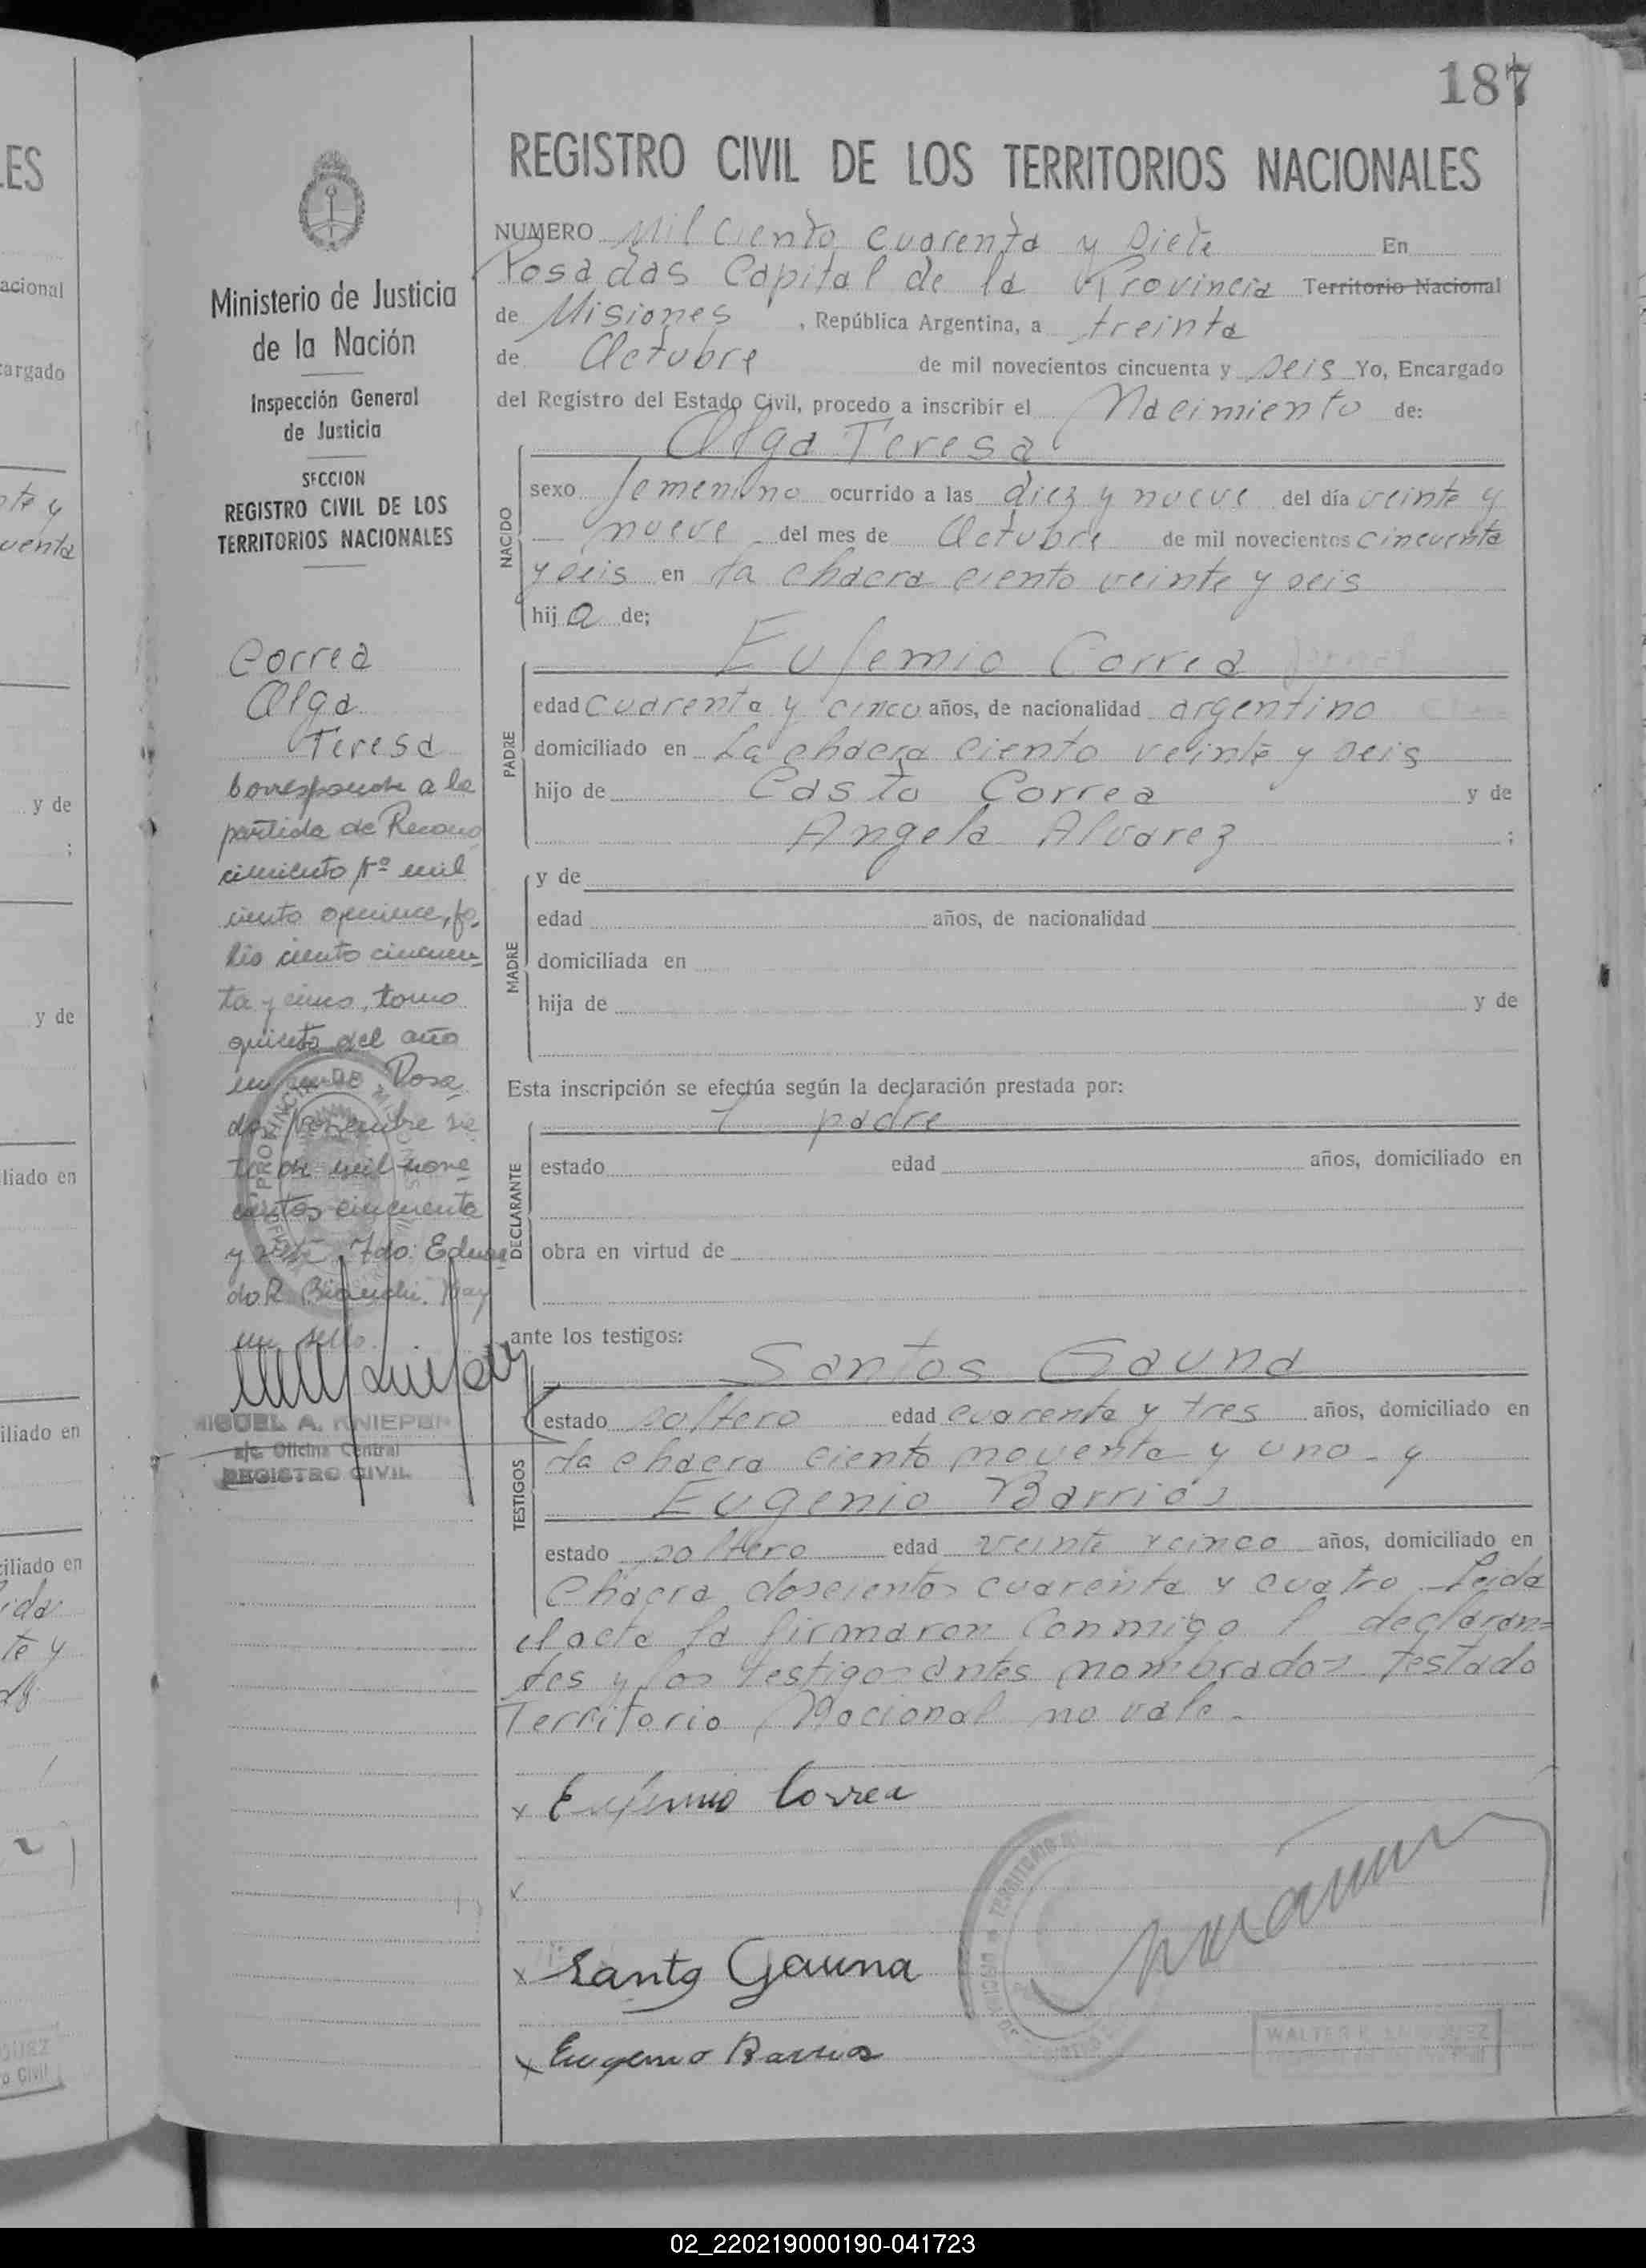 187
REGISTRO CIVIL DE LOS TERRITORIOS NACIONALES
NUMERO Mil ciento cuarenta y siete En
Posadas Capital de la Provincia Territorio Nacional
de Misiones, República Argentina, a treinta
de Octubre de mil novecientos cincuenta y seis Yo, Encargado
del Registro del Estado Civil, procedo a inscribir el Nacimiento de:
Olga Teresa
NACIDO
sexo femenino ocurrido a las diez y nueve del día veinte y
nueve del mes de Octubre de mil novecientos cincuenta
y seis en la chacra ciento veinte y seis
hija de;
Eufemio Correa
PADRE
edad cuarenta y cinco años, de nacionalidad argentino
domiciliado en La chacra ciento veinte y seis
hijo de Casto Correa y de
Angela Alvarez ;
MADRE
y de
edad años, de nacionalidad
domiciliada en
hija de y de
Esta inscripción se efectúa según la declaración prestada por:
l padre
DECLARANTE
estado edad años, domiciliado en
obra en virtud de
ante los testigos:
Santos Gauna
TESTIGOS
estado soltero edad cuarenta y tres años, domiciliado en
la chacra ciento noventa y uno - y
Eugenio Barrios
estado soltero edad veinte y cinco años, domiciliado en
Chacra doscientos cuarenta y cuatro Leida
el acta la firmaron conmigo l declaran=
tes y los testigos antes nombrados testado
Territorio Nacional no vale -
x Eufemio Correa
x
x Santo Gauna
x Eugenio Barrios
Ministerio de Justicia
de la Nación
Inspección General
de Justicia
SECCION
REGISTRO CIVIL DE LOS
TERRITORIOS NACIONALES
Correa
Olga
Teresa
Corresponde a la
partida de Recono
cimiento Nº mil
ciento quince, fo-
lio ciento cincuen-
ta y cinco, tomo
quinto del año
Posa-
das Noviembre sie
te de mil nove
cientos cincuenta
y seis Fdo: Eduar
do R. Bianchi. Hay
un sello.
MIGUEL A. KNIEPEN
a/c. Oficina Central
REGISTRO CIVIL
ES
acional
cargado
y de
y de
liado en
iliado en
ciliado en
02_220219000190-041723